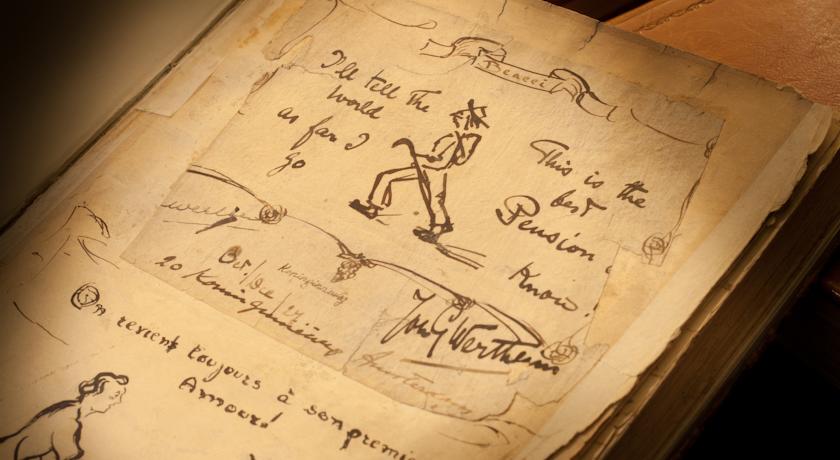 Beacci
I'll tell the
world
as far I
go
This is the
best
Pension
I
Know.
Oct./Dec/24
20 Koninginneweg
Koninginneweg
Joh G Wertheim
Amsterdam
On revient toujours à son premie
Amour!